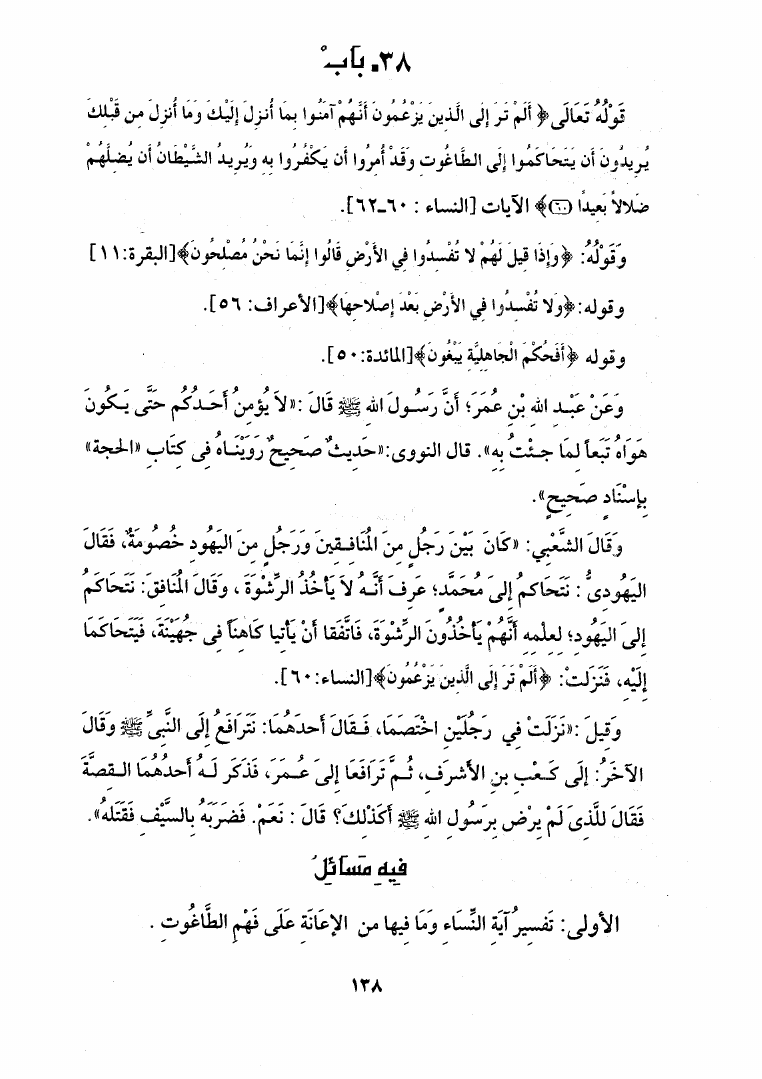 ٣٨. بابٌ
قَوْلُهُ تَعَالَى ﴿ أَلَمْ تَرَ إِلَى الَّذِينَ يَزْعُمُونَ أَنَّهُمْ آمَنُوا بِمَا أُنزِلَ إِلَيْكَ وَمَا أُنزِلَ مِن قَبْلِكَ
يُرِيدُونَ أَن يَتَحَاكَمُوا إِلَى الطَّاغُوتِ وَقَدْ أُمِرُوا أَن يَكْفُرُوا بِهِ وَيُرِيدُ الشَّيْطَانُ أَن يُضِلَّهُمْ
ضَلالاً بَعِيدًا (٦٠)﴾ الآيات [النساء : ٦٠-٦٢].
وَقَوْلُهُ: ﴿وَإِذَا قِيلَ لَهُمْ لا تُفْسِدُوا فِي الأَرْضِ قَالُوا إِنَّمَا نَحْنُ مُصْلِحُونَ﴾[البقرة:١١]
وقوله:﴿وَلا تُفْسِدُوا فِي الأَرْضِ بَعْدَ إِصْلاحِهَا﴾[الأعراف: ٥٦].
وقوله ﴿أَفَحُكْمَ الْجَاهِلِيَّةِ يَبْغُونَ﴾[المائدة:٥٠].
وَعَنْ عَبْدِ اللهِ بْنِ عُمَرَ؛ أَنَّ رَسُولَ اللهِ ﷺ قَالَ :«لاَ يُؤمِنُ أَحَدُكُم حَتَّى يَكُونَ
هَوَاهُ تَبَعاً لمَا جِئْتُ بِه». قال النووى:«حَدِيثٌ صَحِيحٌ رَوَيْنَاهُ فِى كِتَابِ «الحجة»
بِإسْنَادٍ صَحِيحٍ».
وَقَالَ الشَّعْبِي: «كَانَ بَيْنَ رَجُلٍ مِنَ المُنَافِقِينَ وَرَجُلٍ مِنَ اليَهُودِ خُصُومَةٌ، فَقَالَ
اليَهُودِىُّ : نَتَحَاكمُ إِلىَ مُحَمَّدٍ؛ عَرِفَ أَنَّهُ لاَ يَأخُذُ الرِّشْوَةَ ، وَقَالَ المُنَافِقَ: نَتَحَاكَمُ
إِلىَ اليَهُودِ؛ لِعلْمِهِ أَنَّهُمْ يَأخُذُونَ الرِّشْوَةَ، فَاتَّفَقا أَنْ يَأتيا كَاهِناً فِى جُهَيْنَةَ، فَيَتَحَاكَمَا
إِلَيْهِ، فَنَزَلَتْ: ﴿أَلَمْ تَرَ إِلَى الَّذِينَ يَزْعُمُونَ﴾[النساء:٦٠].
وَقِيلَ :«نَزَلَتْ فِي رَجُلَيْنِ اخْتَصَمَا، فَقَالَ أحدَهُمَا: نَتَرَافَعُ إِلَى النَّبِىِّ ﷺ وَقَالَ
الآخَرُ: إِلَى كَعْبِ بنِ الأشرَفِ، ثُمَّ تَرَافَعَا إِلىَ عُمَرَ، فَذَكَرَ لَهُ أحدُهُمَا القِصَّةَ
فَقَالَ للَّذِى لَمْ يرْضَ بِرَسُولِ اللهِ ﷺ أَكَذَلِكَ؟ قَالَ : نَعَمْ. فَضَرَبَهُ بِالسَّيْفِ فَقَتَلَهُ».
فِيهِ مَسَائِلُ
الأولى: تَفسِيرُ آيَةِ النِّسَاءِ وَمَا فِيها مِن الإعَانَةِ عَلَى فَهْمِ الطَّاغُوتِ .
١٣٨